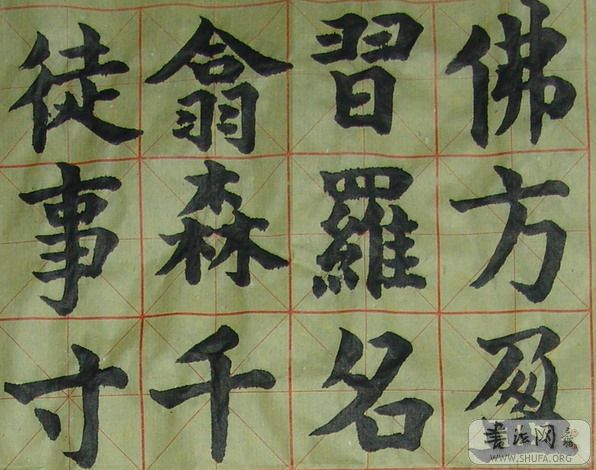 佛方盈
習羅名
翕森千
徒事寸
書法网
WWW.SHUFA.ORG